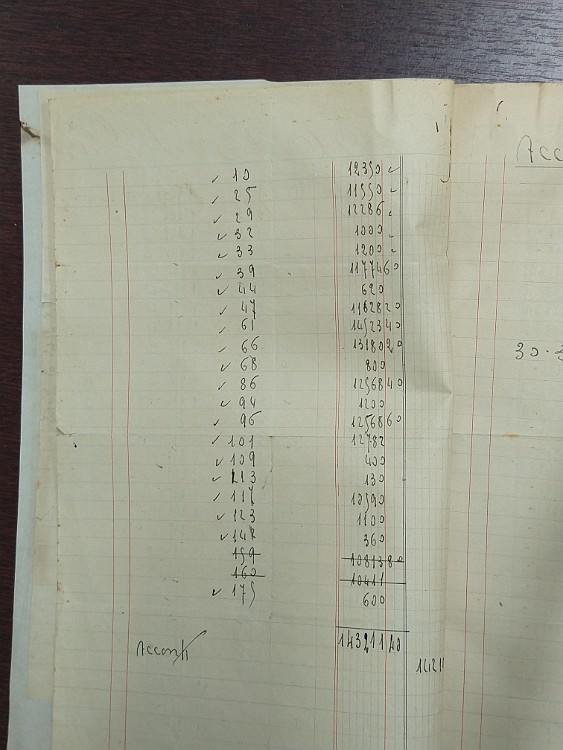 Acc
✓ 10 12350 ✓
✓ 25 11550 ✓
✓ 29 12286 ✓
✓ 32 1000 ✓
✓ 33 1200 ✓
✓ 39 11774 60
✓ 44 620
✓ 47 11628 20
✓ 61 14523 40
✓ 66 13180 20
✓ 68 800
✓ 86 12568 40
✓ 94 1200
✓ 96 12568 60
✓ 101 12782
✓ 109 400
✓ 113 130
✓ 117 10590
✓ 123 1100
✓ 148 360
159 10813 80
160 10411
✓ 175 600
Acconti 143211 40
30.3